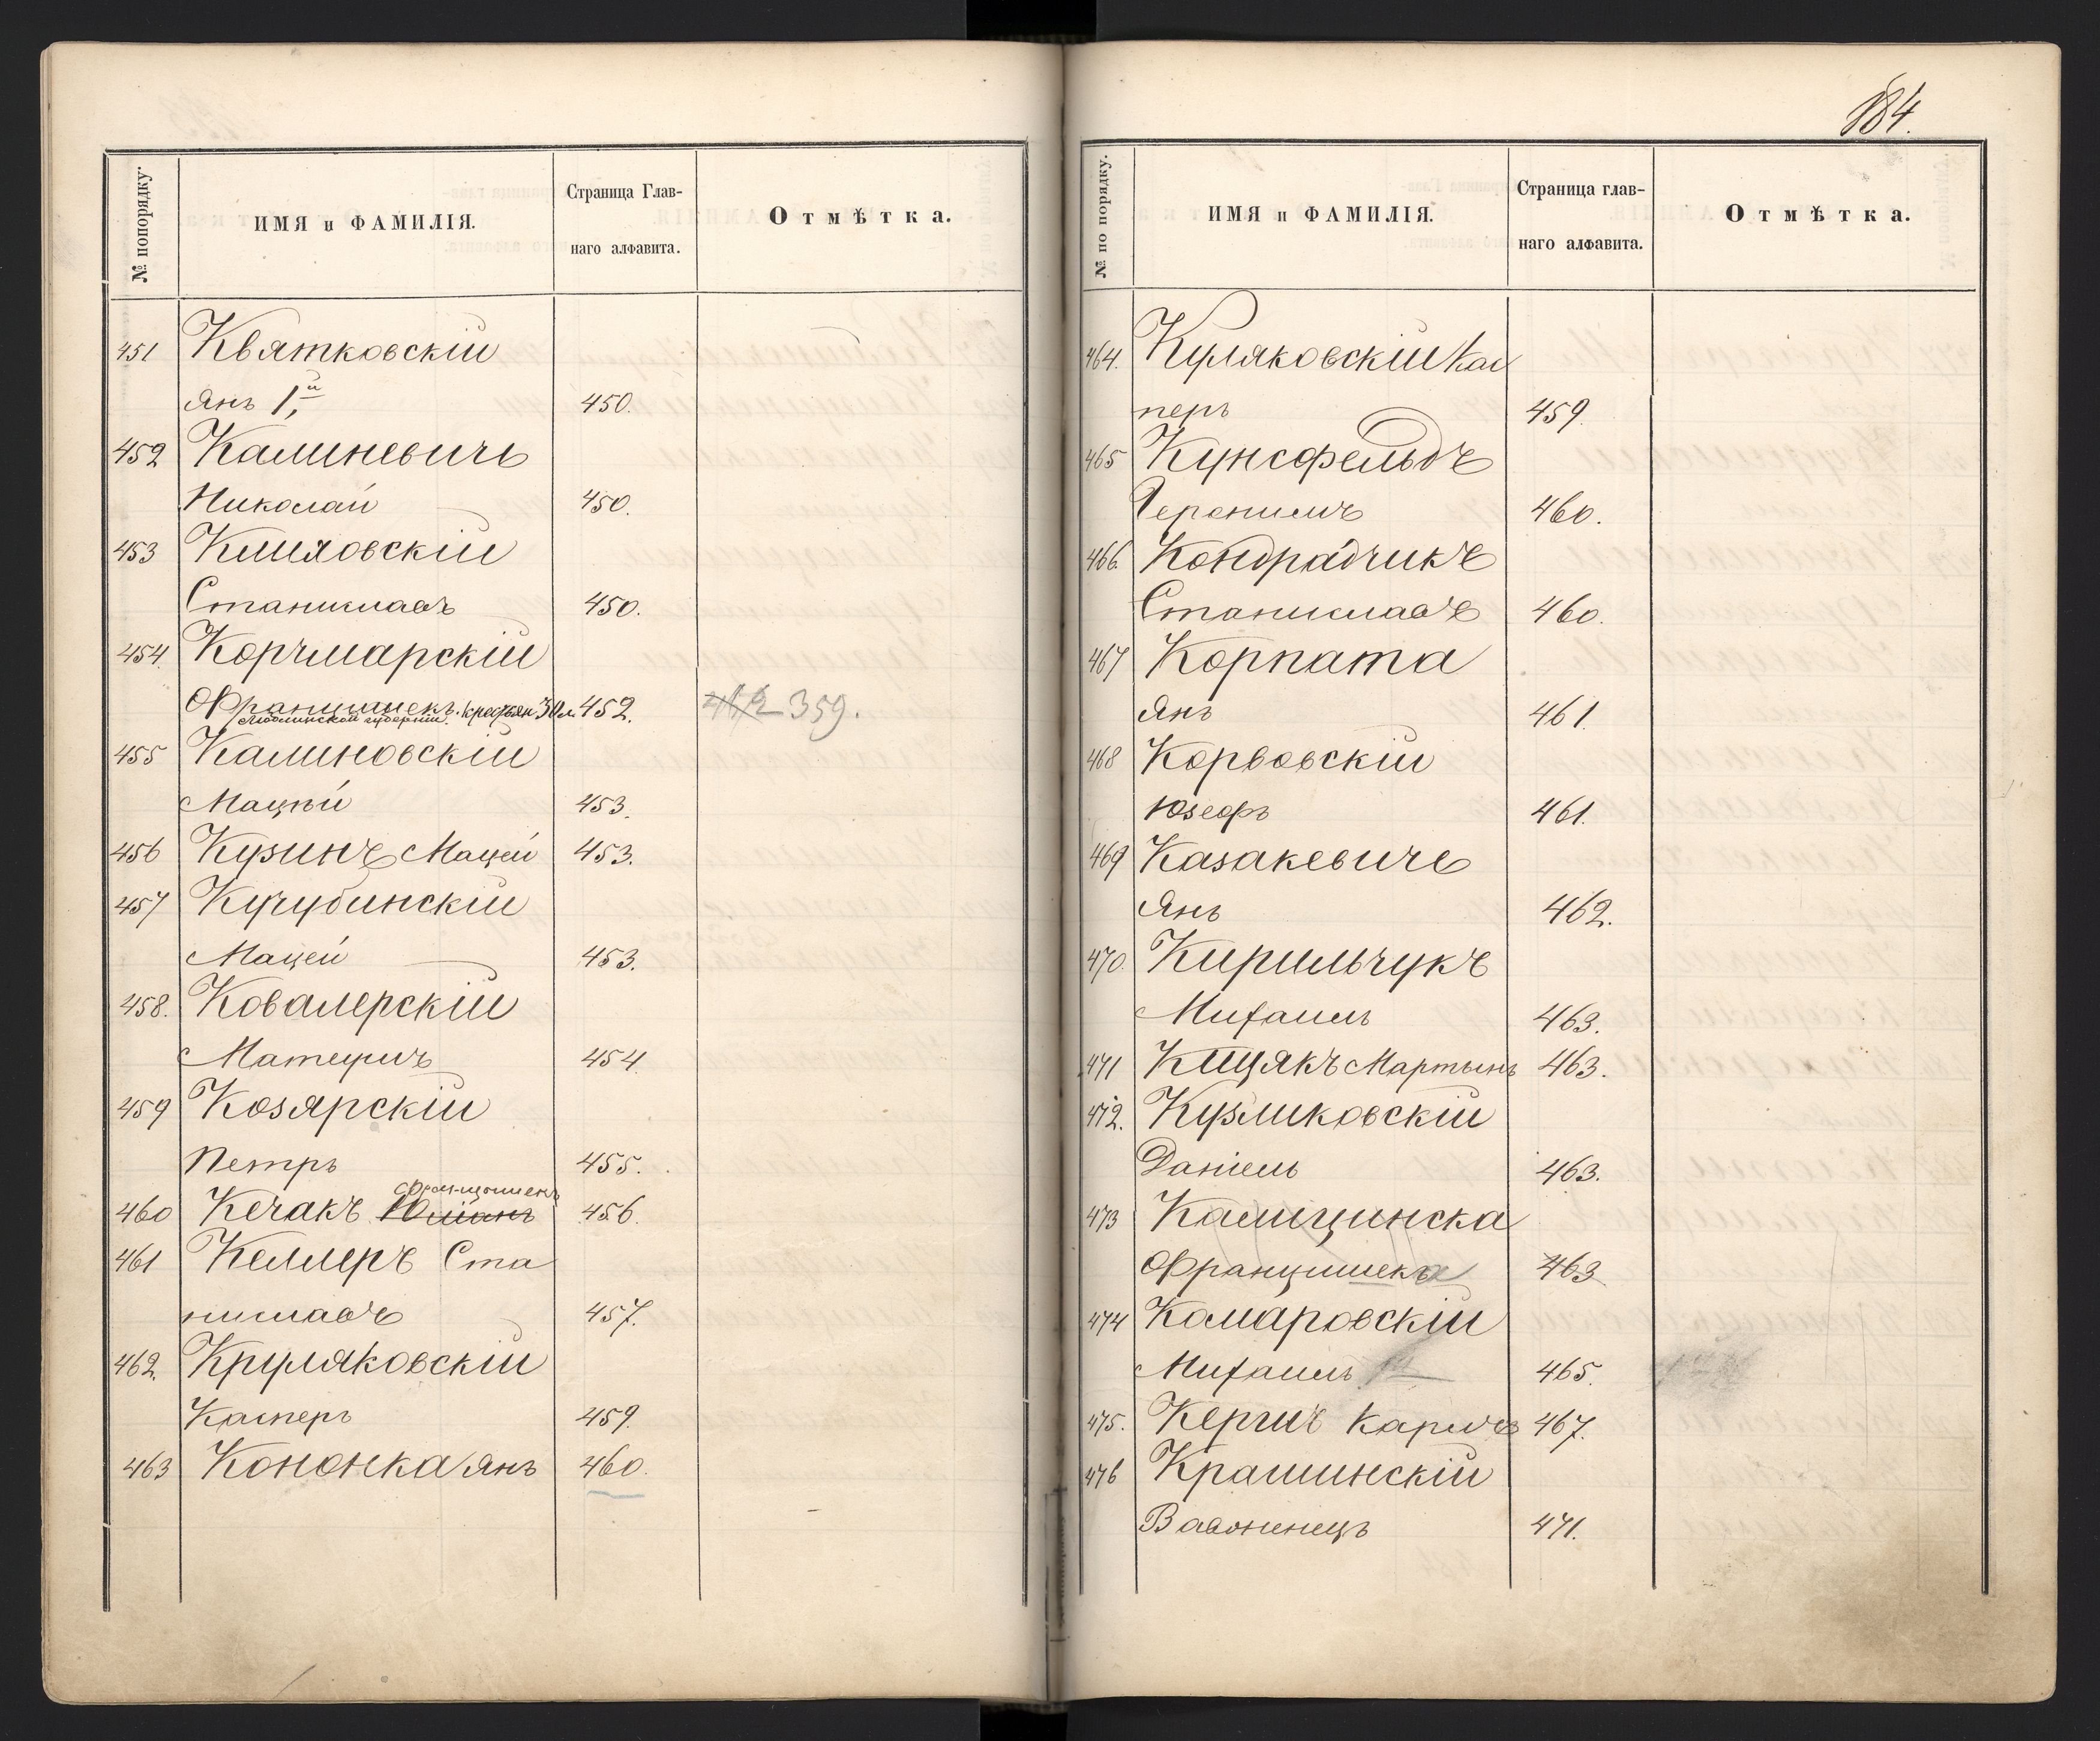 184.
№ попорядку.
ИМЯ и ФАМИЛІЯ.
Страница Глав-
наго алфавита.
Отмѣтка.
451 Квятковскій
Янъ 1й 450.
452 Калиневичъ
Николай 450.
453
Станиславъ 450.
454. Корчмарскій
Францишекъ. крестьян. 30 л. 452. 359.
Люблинской губерніи.
455 Калиновскій
Мацѣй 453.
456 Кузинъ Мацей 453.
457 Кучубинскій
Мацей 453.
458. Ковалерскій
Матеушъ 454
459 Козярскій
Петръ 455.
Францишекъ
460 Кечакъ Юліанъ 456.
461 Келлеръ Ста
ниславъ 457.
462. Круляковскій
Касперъ 459.
463 Кононка Янъ 460.
№ по порядку.
ИМЯ и ФАМИЛІЯ.
Страница глав-
наго алфавита.
Отмѣтка.
464. Куляковскій Кас
перъ 459.
465 Кунсфельдъ
Іеронимъ 460.
466. Кондрадчикъ
Станиславъ 460.
467 Корпата
Янъ 461.
468 Корвовскій
Юзефъ 461.
469 Казакевичъ
Янъ 462.
470. Кирильчукъ
Михаилъ 463.
471 Мартынъ 463.
472. Кузликовскій
Даніель 463.
473
Францишека 463
474 Комаровскій
Михаилъ 465.
475. Карлъ 467.
476 Крашинскій
471.